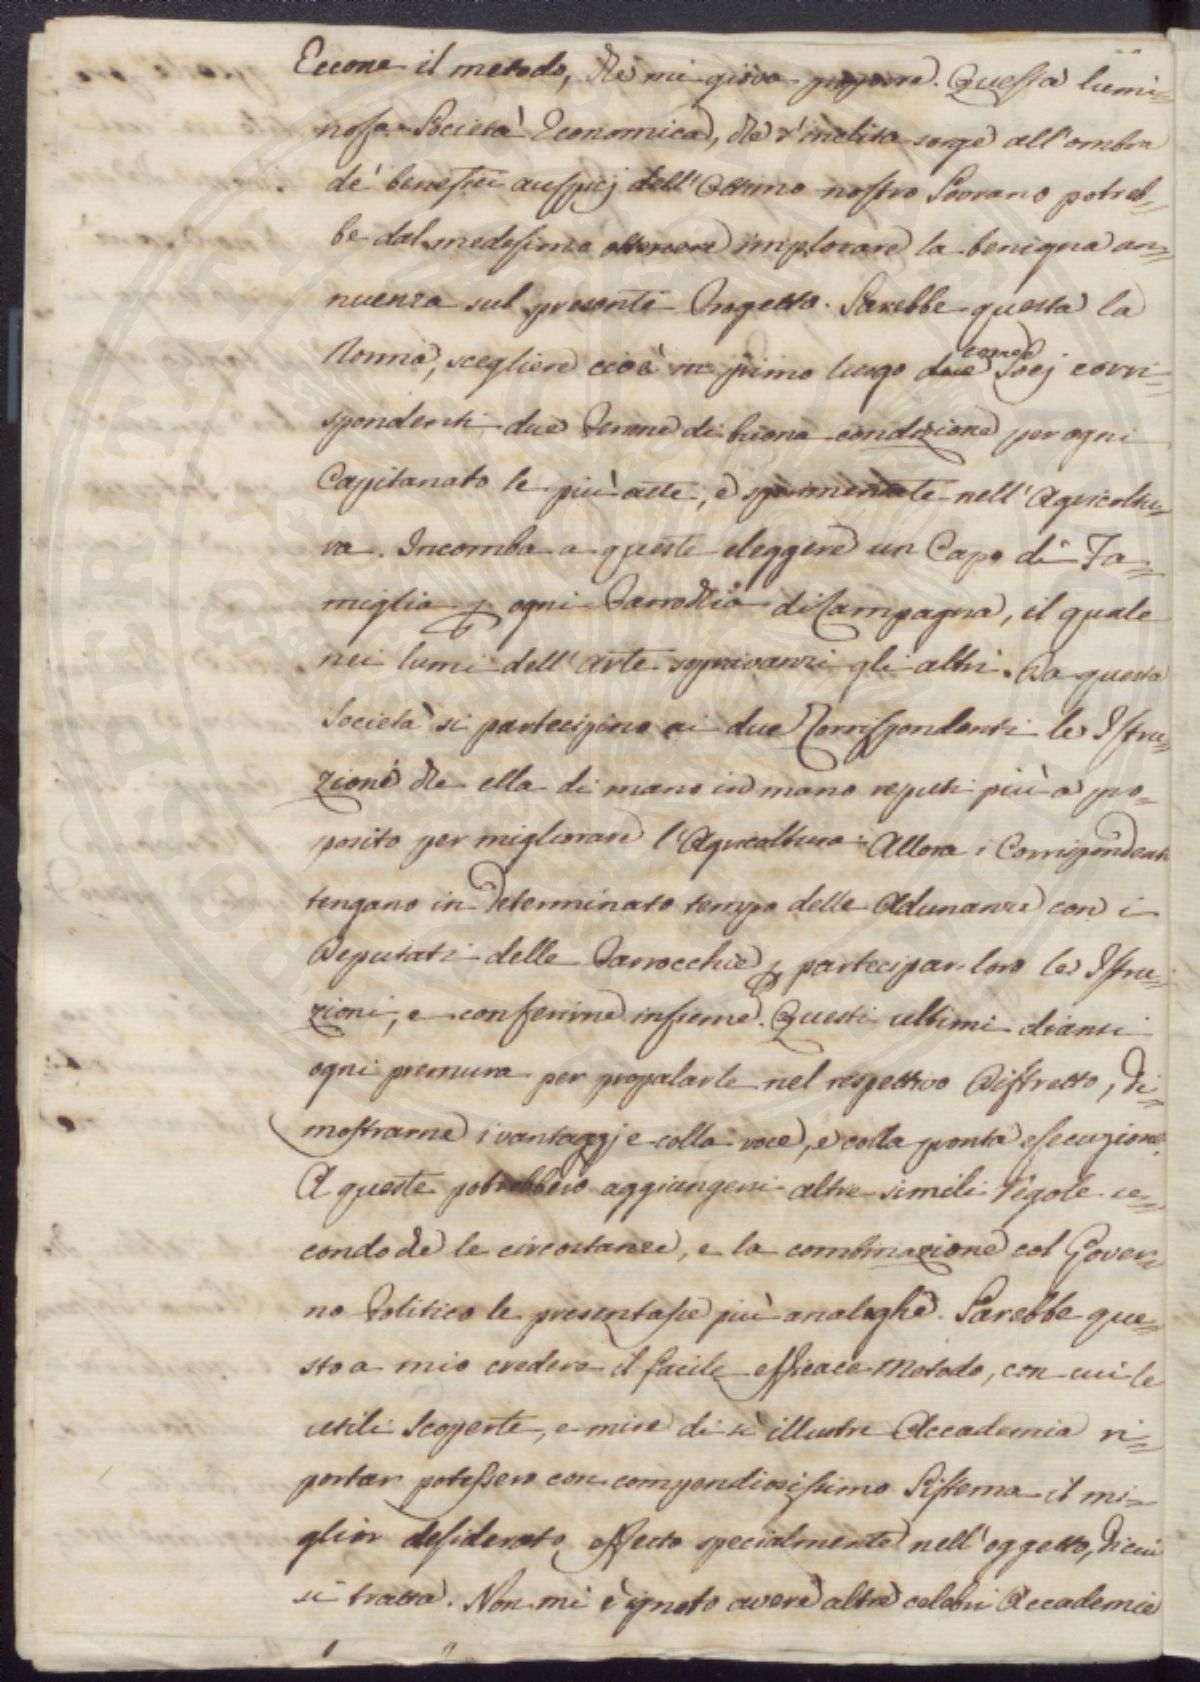 Eccone il metodo, che mi giova proporre. Questa lumi=
nosa Società Economica, che sì inclita sorge all'ombra
de' benefici auspicj dell'Ottimo nostro Sovrano potreb=
be dal medesimo ottenere implorare la benigna an=
nuenza sul presente Progetto. Sarebbe questa la
Norma, scegliere cioè in primo luogo due come Socj corri=
spondenti due Persone di buona condizione per ogni
Capitanato le più atte, e sperimentate nell'Agricoltu=
ra. Incomba a queste eleggere un Capo di Fa=
miglia p ogni Parrochia di Campagna, il quale
nei lumi dell'arte sopravanzi gli altri. Da questa
Società si partecipino ai due Corrispondenti le Istru=
zioni che ella di mano in mano reputi più a pro=
posito per migliorare l'Agricoltura: Allora i Corrispondenti
tengano in determinato tempo delle Adunanze con i
Deputati delle Parrocchie p partecipar loro le Istru=
zioni, e conferirne insieme. Questi ultimi diansi
ogni premura per propalarle nel respettivo Distretto, di=
mostrarne i vantaggj e colla voce, e colla pronta esecuzione.
A queste potrebbero aggiungersi altre simili regole se=
condo che le circostanze, e la combinazione col Gover=
no Politico le presentasse più analoghe. Sarebbe que=
sto a mio credere il facile efficace Metodo, con cui le
utili Scoperte, e mire di sì illustre Accademia ri=
portar potessero con compendiosissimo Sistema il mi=
glior desiderato effetto specialmente nell'oggetto, di cui
si tratta. Non mi è ignoto avere altre celebri Accademie